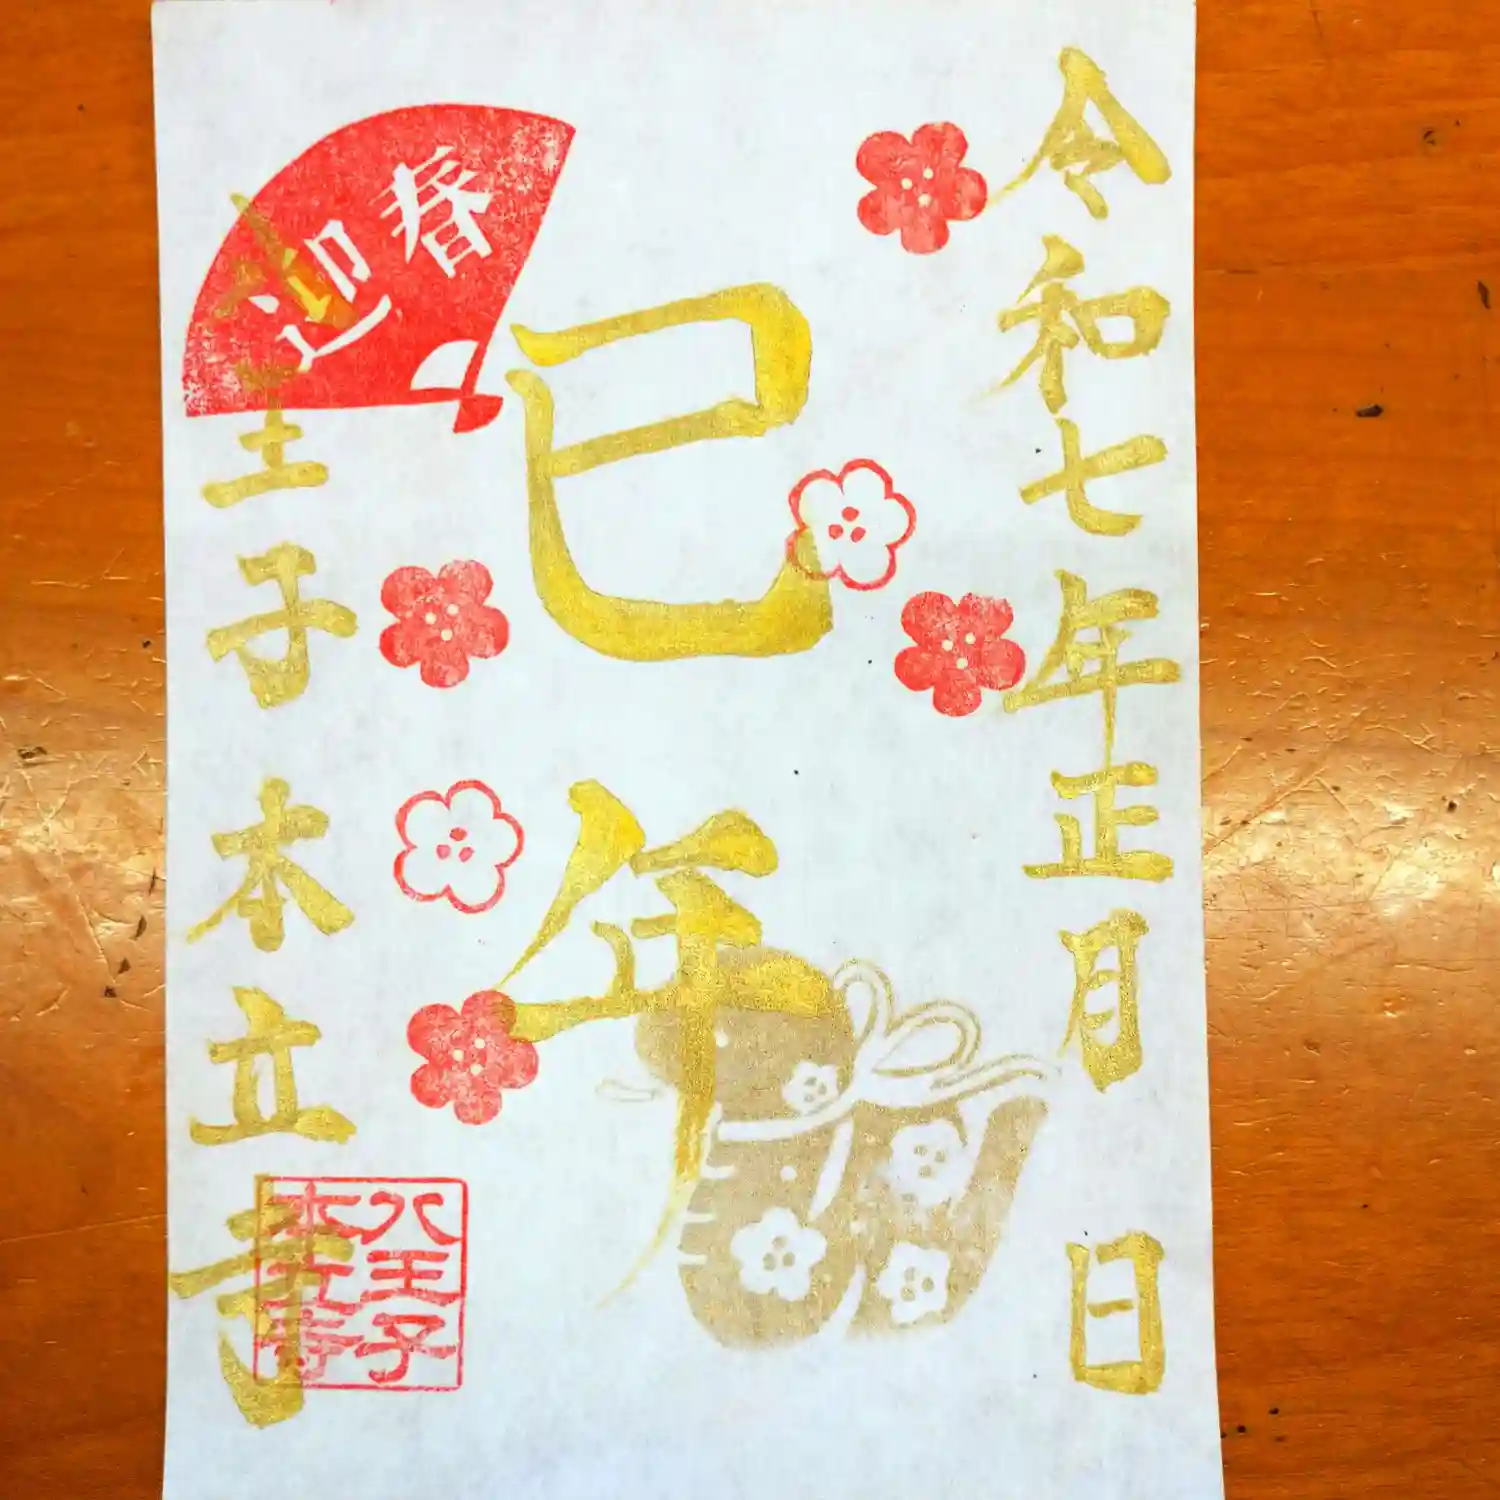 令和七年正月 日
巳年
迎春
八王子本立寺
八王子
本立寺